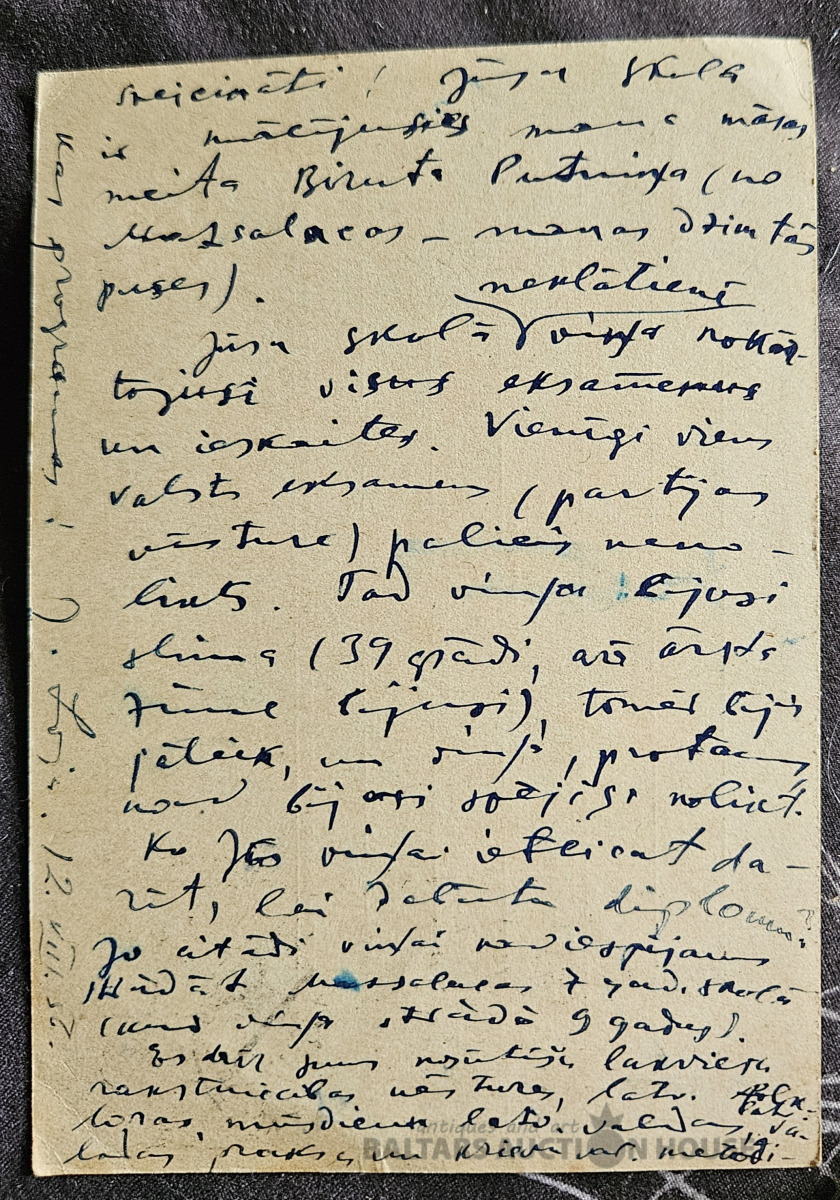 sveicināti! Jūsu skolā
ir mācījusies mana māsas
meita Biruta Putniņa (no
Mazsalacas – manas dzimtās
puses).
neklātienē
Jūsu skolā viņa nokār-
tojusi visus eksāmenus
un ieskaites. Vienīgi viens
valsts eksāmens (partijas
vēsture) palicis neno-
likts. Tad viņa bijusi
slima (39 grādi, arī ārsta
zīme bijusi), tomēr bijis
jāliek, un viņa, protams,
nav bijusi spējīga nolikt.
Ko Jūs viņai ieteicat da-
rīt, lai dabūtu diplomu?
Jo citādi viņai nav iespējams
strādāt Mazsalacas 7 gad. skolā
(kur viņa strādā 9 gadus).
Es drīz jums nosūtīšu latviešu
rakstniecības vēstures, latv. folk-
loras, mūsdienu latv. valodas, va-
lodas praks. un krievu val. metodi-
kas programmas!
12. VIII. 52.
Antiques and art
BALTARS AUCTION HOUSE